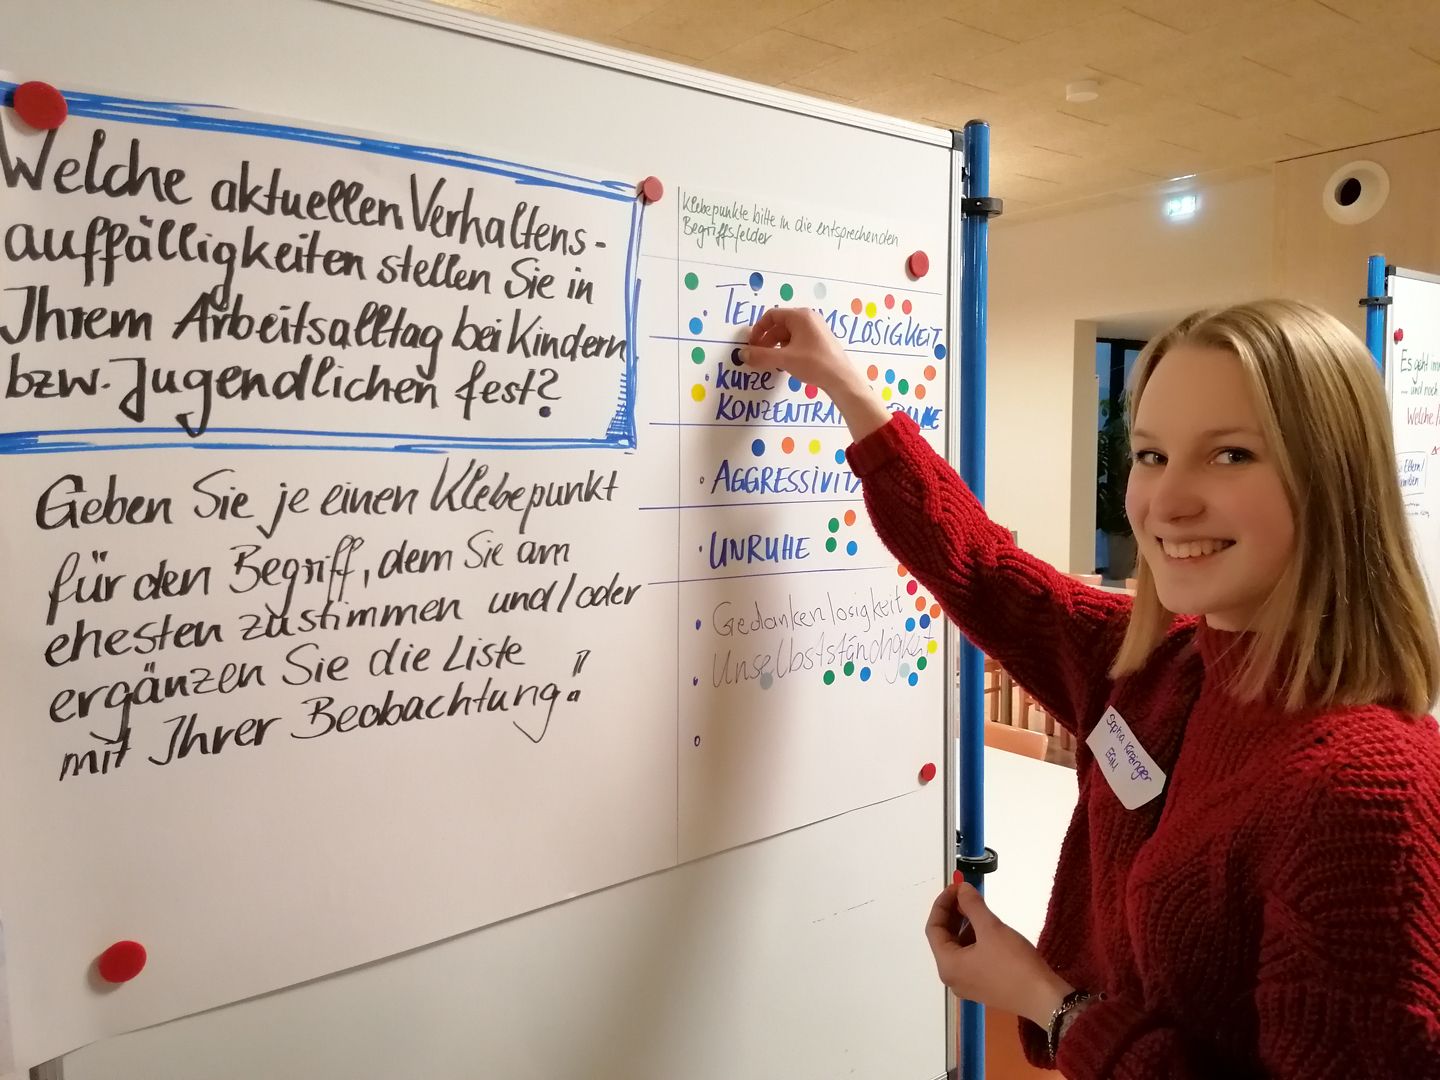 Welche aktuellen Verhaltens-
auffälligkeiten stellen Sie in
Ihrem Arbeitsalltag bei Kindern
bzw. Jugendlichen fest?
Geben Sie je einen Klebepunkt
für den Begriff, dem Sie am
ehesten zustimmen und/oder
ergänzen Sie die Liste
mit Ihrer Beobachtung!!
Klebepunkte bitte in die entsprechenden
Begriffsfelder
LOSIGKEIT
kurze
AGGRESSIVITÄ
UNRUHE
Gedankenlosigkeit
Unselbstständigkeit
Sophia
EGM
Es geht
und noch
Eltern/